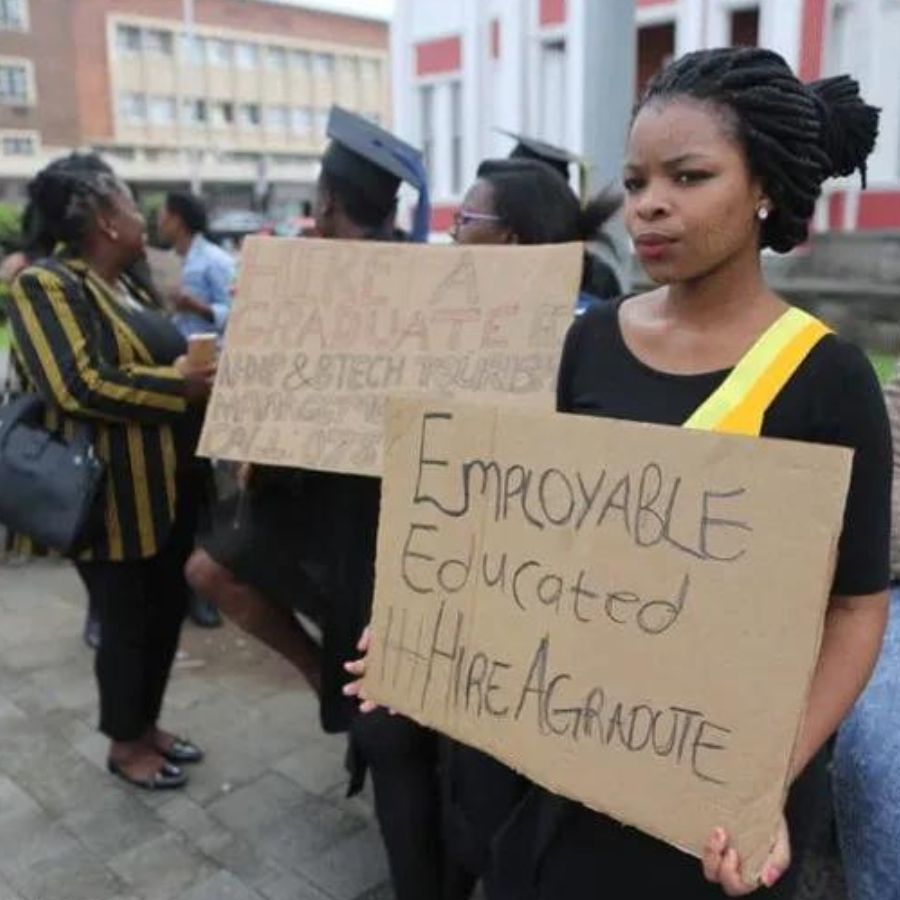 HIRE A
GRADUATE
N-DIP & BTECH TOURISM
MANAGEMENT
CALL 078
EMPLOYABLE
Educated
#HIREAGRADUTE